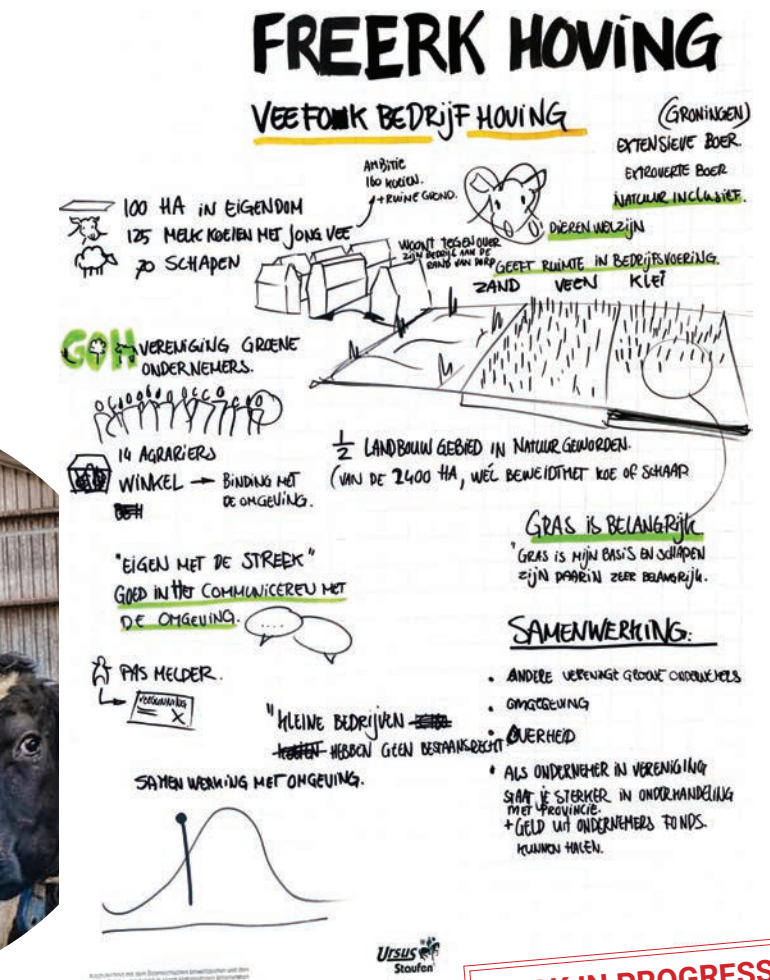 FREERK HOVING
VEEFOKK BEDRIJF HOVING
(GRONINGEN)
EXTENSIEVE BOER.
EXTROVERTE BOER
NATUUR INCLUSIEF.
AMBITIE
160 KOEIEN.
+ RUIME GROND.
100 HA IN EIGENDOM
125 MELK KOEIEN MET JONG VEE
70 SCHAPEN
DIEREN WELZIJN
WOONT TEGENOVER
ZIJN BEDRIJF AAN DE
RAND VAN DORP
GEEFT RUIMTE IN BEDRIJFSVOERING.
ZAND VEEN KLEI
GOH VERENIGING GROENE
ONDERNEMERS.
14 AGRARIERS
WINKEL → BINDING MET
DE OMGEVING.
1/2 LANDBOUW GEBIED IN NATUUR GEWORDEN.
(VAN DE 2400 HA, WÉL BEWEIDT MET KOE OF SCHAAP
GRAS IS BELANGRIJK
"GRAS IS MIJN BASIS EN SCHAPEN
ZIJN DAARIN ZEER BELANGRIJK.
"EIGEN MET DE STREEK"
GOED IN HET COMMUNICEREN MET
DE OMGEVING.
PAS MELDER.
VERGUNNING
X
"KLEINE BEDRIJVEN
HEBBEN GEEN BESTAANSRECHT
SAMENWERKING:
• ANDERE VERENIGT GROENE ONDERNEMERS
• OMGEGEVING
• OVERHEID
• ALS ONDERNEMER IN VERENIGING
STAAT JE STERKER IN ONDERHANDELING
MET PROVINCIE.
+ GELD UIT ONDERNEMERS FONDS.
KUNNEN HALEN.
SAMEN WERKING MET OMGEVING.
Ursus
Staufen
IN PROGRESS